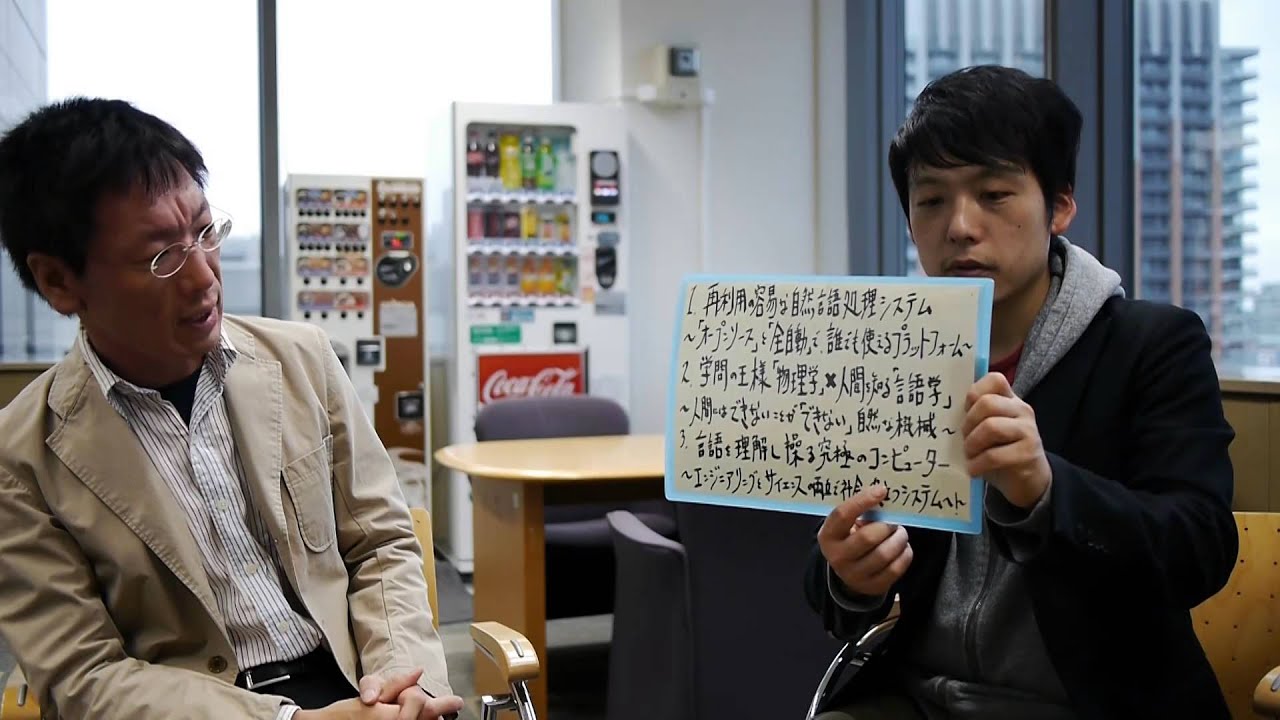 Coca-Cola
1. 再利用の容易な自然言語処理システム
〜「オープンソース」と「全自動」で、誰でも使えるプラットフォーム〜
2. 学問の王様「物理学」×人間を知る「言語学」
〜人間にはできないことが「できない」自然な機械〜
3. 言語を理解し操る究極のコンピューター
〜エンジニアリングとサイエンスの両立で社会 立つシステムへ〜